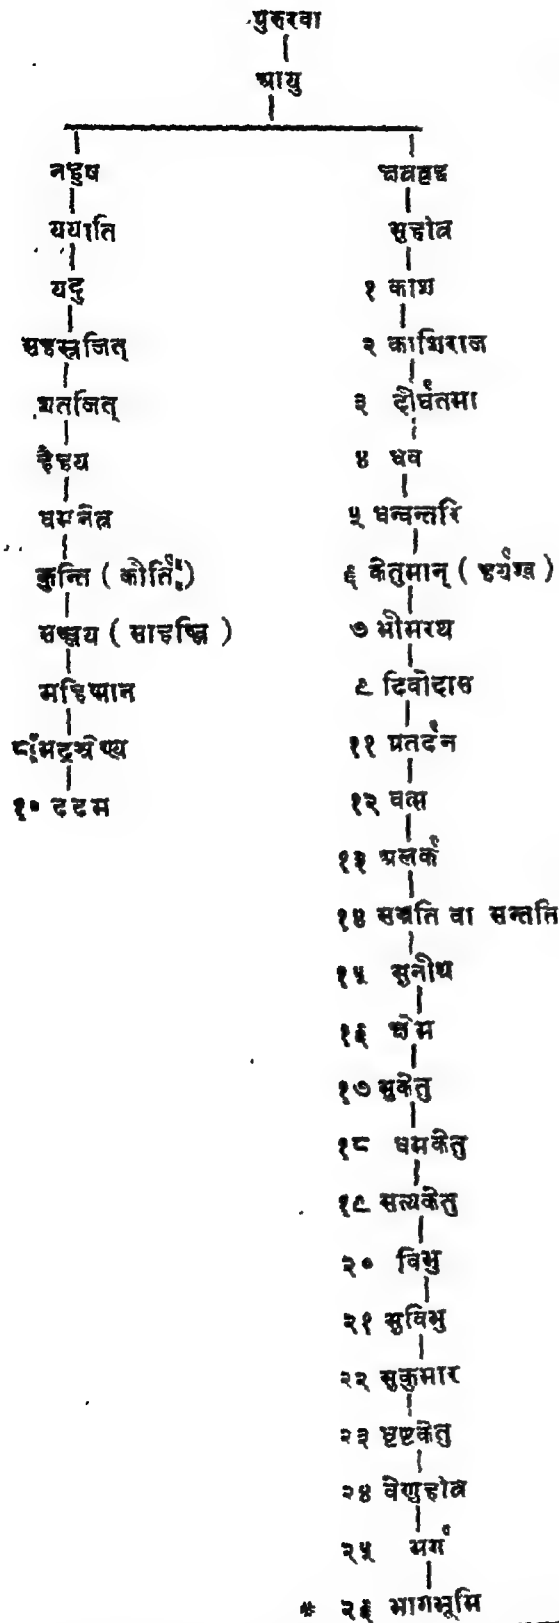 पुरुरवा
आयु
नहुष
ययाति
यदु
सहस्रजित्
शतजित्
हैहय
धर्मनेत्र
कुन्ति ( कीर्ति )
सञ्जय ( साहञ्जि )
महिष्मान
८ भद्रश्रेण्य
१० ददम
क्षत्रवृद्ध
सुहोत्र
१ काश
२ काशिराज
३ दीर्घतमा
४ धव
५ धन्वन्तरि
६ केतुमान् ( हर्यश्व )
७ भीमरथ
९ दिवोदास
११ प्रतर्दन
१२ वत्स
१३ अलर्क
१४ सन्नति वा सन्तति
१५ सुनीथ
१६ क्षेम
१७ सुकेतु
१८ धर्मकेतु
१९ सत्यकेतु
२० विभु
२१ सुविभु
२२ सुकुमार
२३ धृष्टकेतु
२४ वेणुहोत्र
२५ भर्ग
* २६ भार्गभूमि